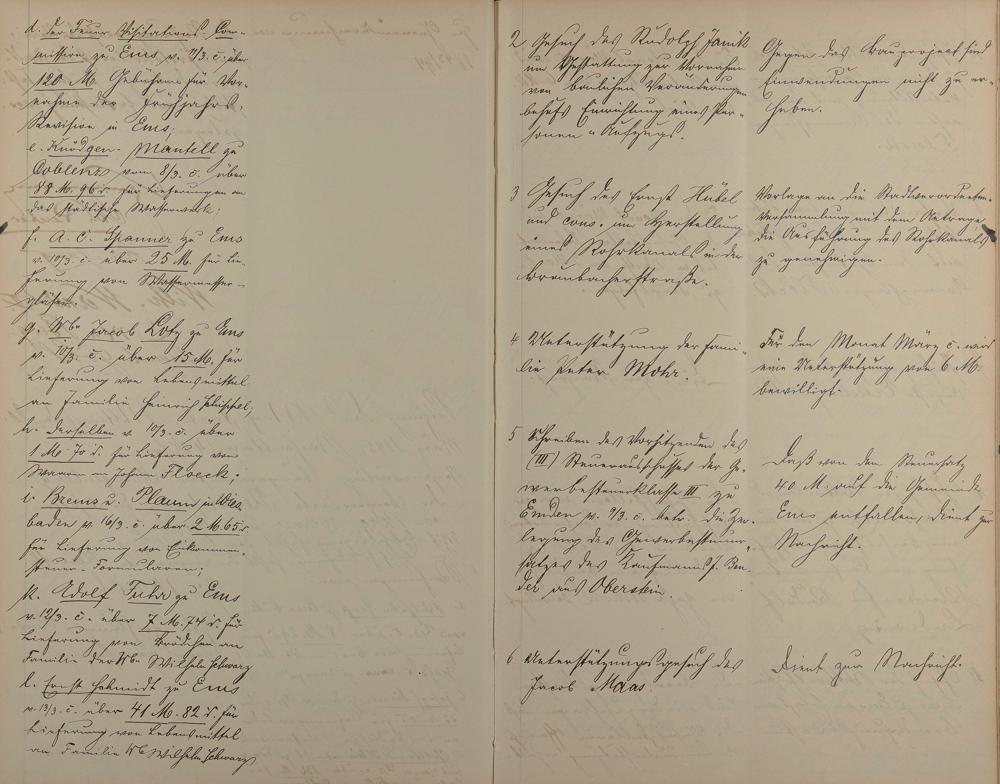 d. der Feuer-Visitations-Com-
mission zu Ems v. 7/3. c. über
120 M. Gebühren für Vor-
nahme der Frühjahrs-
Revision in Ems;
e. Knödgen-Mantell zu
Coblenz vom 8/3. c. über
88 M. 96 d. für Lieferungen an
das städtische Wasserwerk;
f. A. C. Spanner zu Ems
v. 10/3. c. über 25 M. für Lie-
ferung von Wassermesser-
gläser.
g. Wbe Jacob Lotz zu Ems
v. 10/3. c. über 15 M. für
Lieferung von Lebensmittel
an Familie Heinrich
h. derselben v. 10/3. c. über
1 M. 70 d. für Lieferung von
Waaren an Johann Floeck;
i. Brems u. Plaum in Wies-
baden v. 16/3. c. über 2 M. 65 d.
für Lieferung von Einkommen-
steuer-Formularen;
k. Adolf Tuhr zu Ems
v. 12/3. c. über 7 M. 74 d. für
Lieferung von Brödchen an
Familie der Wbe Wilhelm Schwarz
l. Ernst Schmidt zu Ems
v. 13/3. c. über 41 M. 82 d. für
Lieferung von Lebensmittel
an Familie Wb Wilhelm Schwarz
2 Gesuch des Rudolph Janik
um Gestattung zur Vornahme
von baulichen Veränderungen
behufs Einrichtung eines Per-
sonen-Aufzugs.
Gegen das Bauproject sind
Einwendungen nicht zu er-
heben.
3 Gesuch des Ernst Hübel
und cons. um Herstellung
eines Rohrkanals in der
Braubacherstraße.
Vorlage an die Stadtverordneten-
Versammlung mit dem Antrage,
die Ausführung des Rohrkanals
zu genehmigen.
4 Unterstützung der Fami-
lie Peter Mohr.
Für den Monat März c. wird
eine Unterstützung von 6 M.
bewilligt.
5 Schreiben des Vorsitzenden des
(III) Steuerausschusses der Ge-
werbesteuerklasse III zu
Emden v. 9/3. c. betr. die Zer-
legung des Gewerbesteuer-
satzes des Kaufmanns J. Ben-
der aus Oberstein.
Daß von dem Steuersatz
40 M. auf die Gemeinde
Ems entfallen, dient zur
Nachricht.
6 Unterstützungsgesuch des
Jacob Maas.
Dient zur Nachricht.